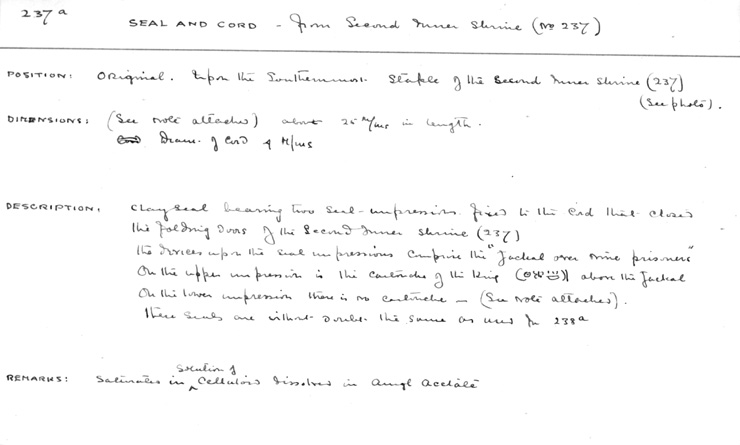 237a
SEAL AND CORD - from Second Inner Shrine (No 237)
POSITION: Original. Upon the Southernmost Staple of the Second Inner Shrine (237)
(See photo).
DIMENSIONS: (See note attached) about 25 M/ms in length.
Diam. of Cord 4 M/ms
DESCRIPTION: Clay seal bearing two seal-impressions fixed to the Cord that closed
the folding doors of the Second Inner Shrine (237)
the devices upon the seal impressions comprise the "Jackal over nine prisoners"
On the upper impression is the cartouche of the King above the Jackal
On the lower impression there is no cartouche - (See note attached).
These seals are without doubt the same as used for 238a
REMARKS: Saturated in solution of Celluloid dissolved in Amyl Acetate